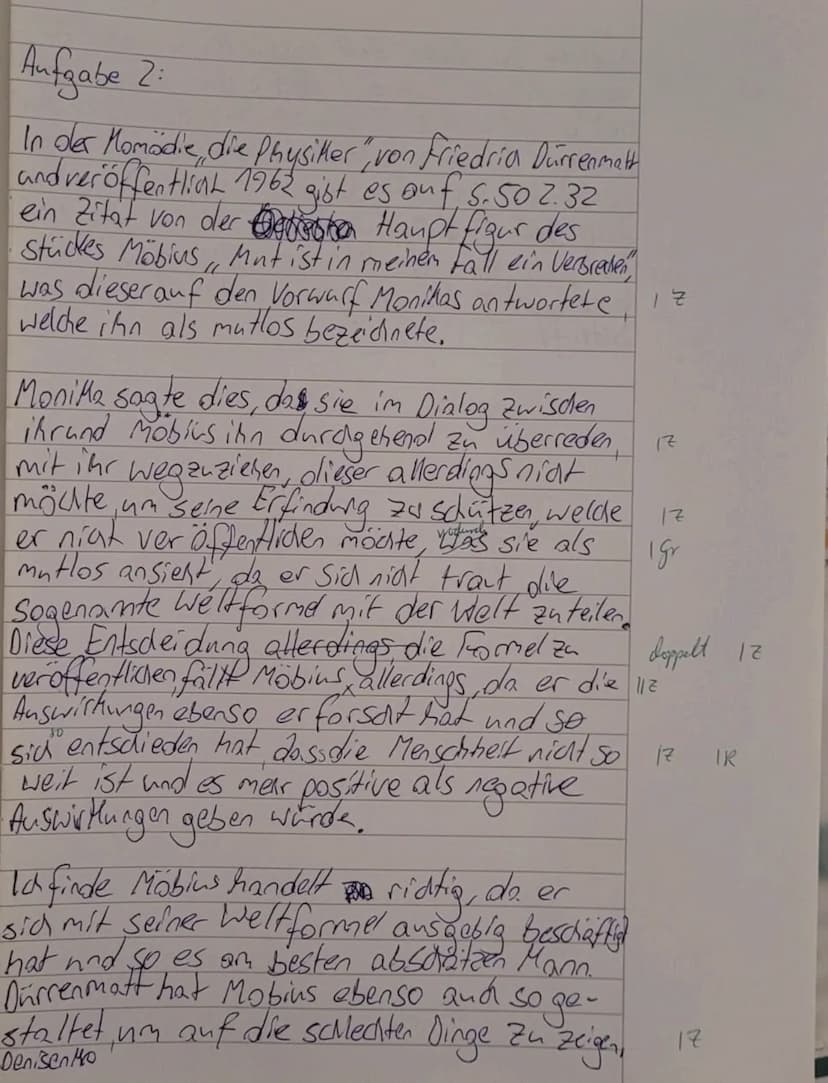 Aufgabe 2:
In der Komödie „die Physiker", von Friedrich Dürrenmatt
und veröffentlicht 1962 gibt es auf S. 50 Z. 32
ein Zitat von der Hauptfigur des
stückes Möbius „Mut ist in meinem Fall ein Verbrechen",
was dieser auf den Vorwurf Monikas antwortete, 1 Z
welche ihn als mutlos bezeichnete.
Monika sagte dies, das sie im Dialog zwischen
ihr und Möbius ihn durchgehend zu überreden, 1Z
mit ihr wegzuziehen, dieser allerdings nicht
möchte, um seine Erfindung zu schützen, welche 1Z
er nicht veröffentlichen möchte, was wodurch sie als 1 Gr
mutlos ansieht, da er sich nicht traut die
sogenannte Weltformel mit der Welt zu teilen.
Diese Entscheidung allerdings die Formel zu doppelt 1Z
veröffentlichen, fällt Möbius, allerdings, da er die 11Z
Auswirkungen ebenso erforscht hat und so
sich so entschieden hat, dass die Menschheit nicht so 1Z 1R
weit ist und es mehr positive als negative
Auswirkungen geben würde.
Ich finde Möbius handelt richtig, da er
sich mit seiner Weltformel ausgebig beschäftigt
hat und so es am besten abschätzen kann.
Dürrenmatt hat Möbius ebenso auch so ge-
staltet, um auf die schlechten Dinge zu zeigen, 1Z